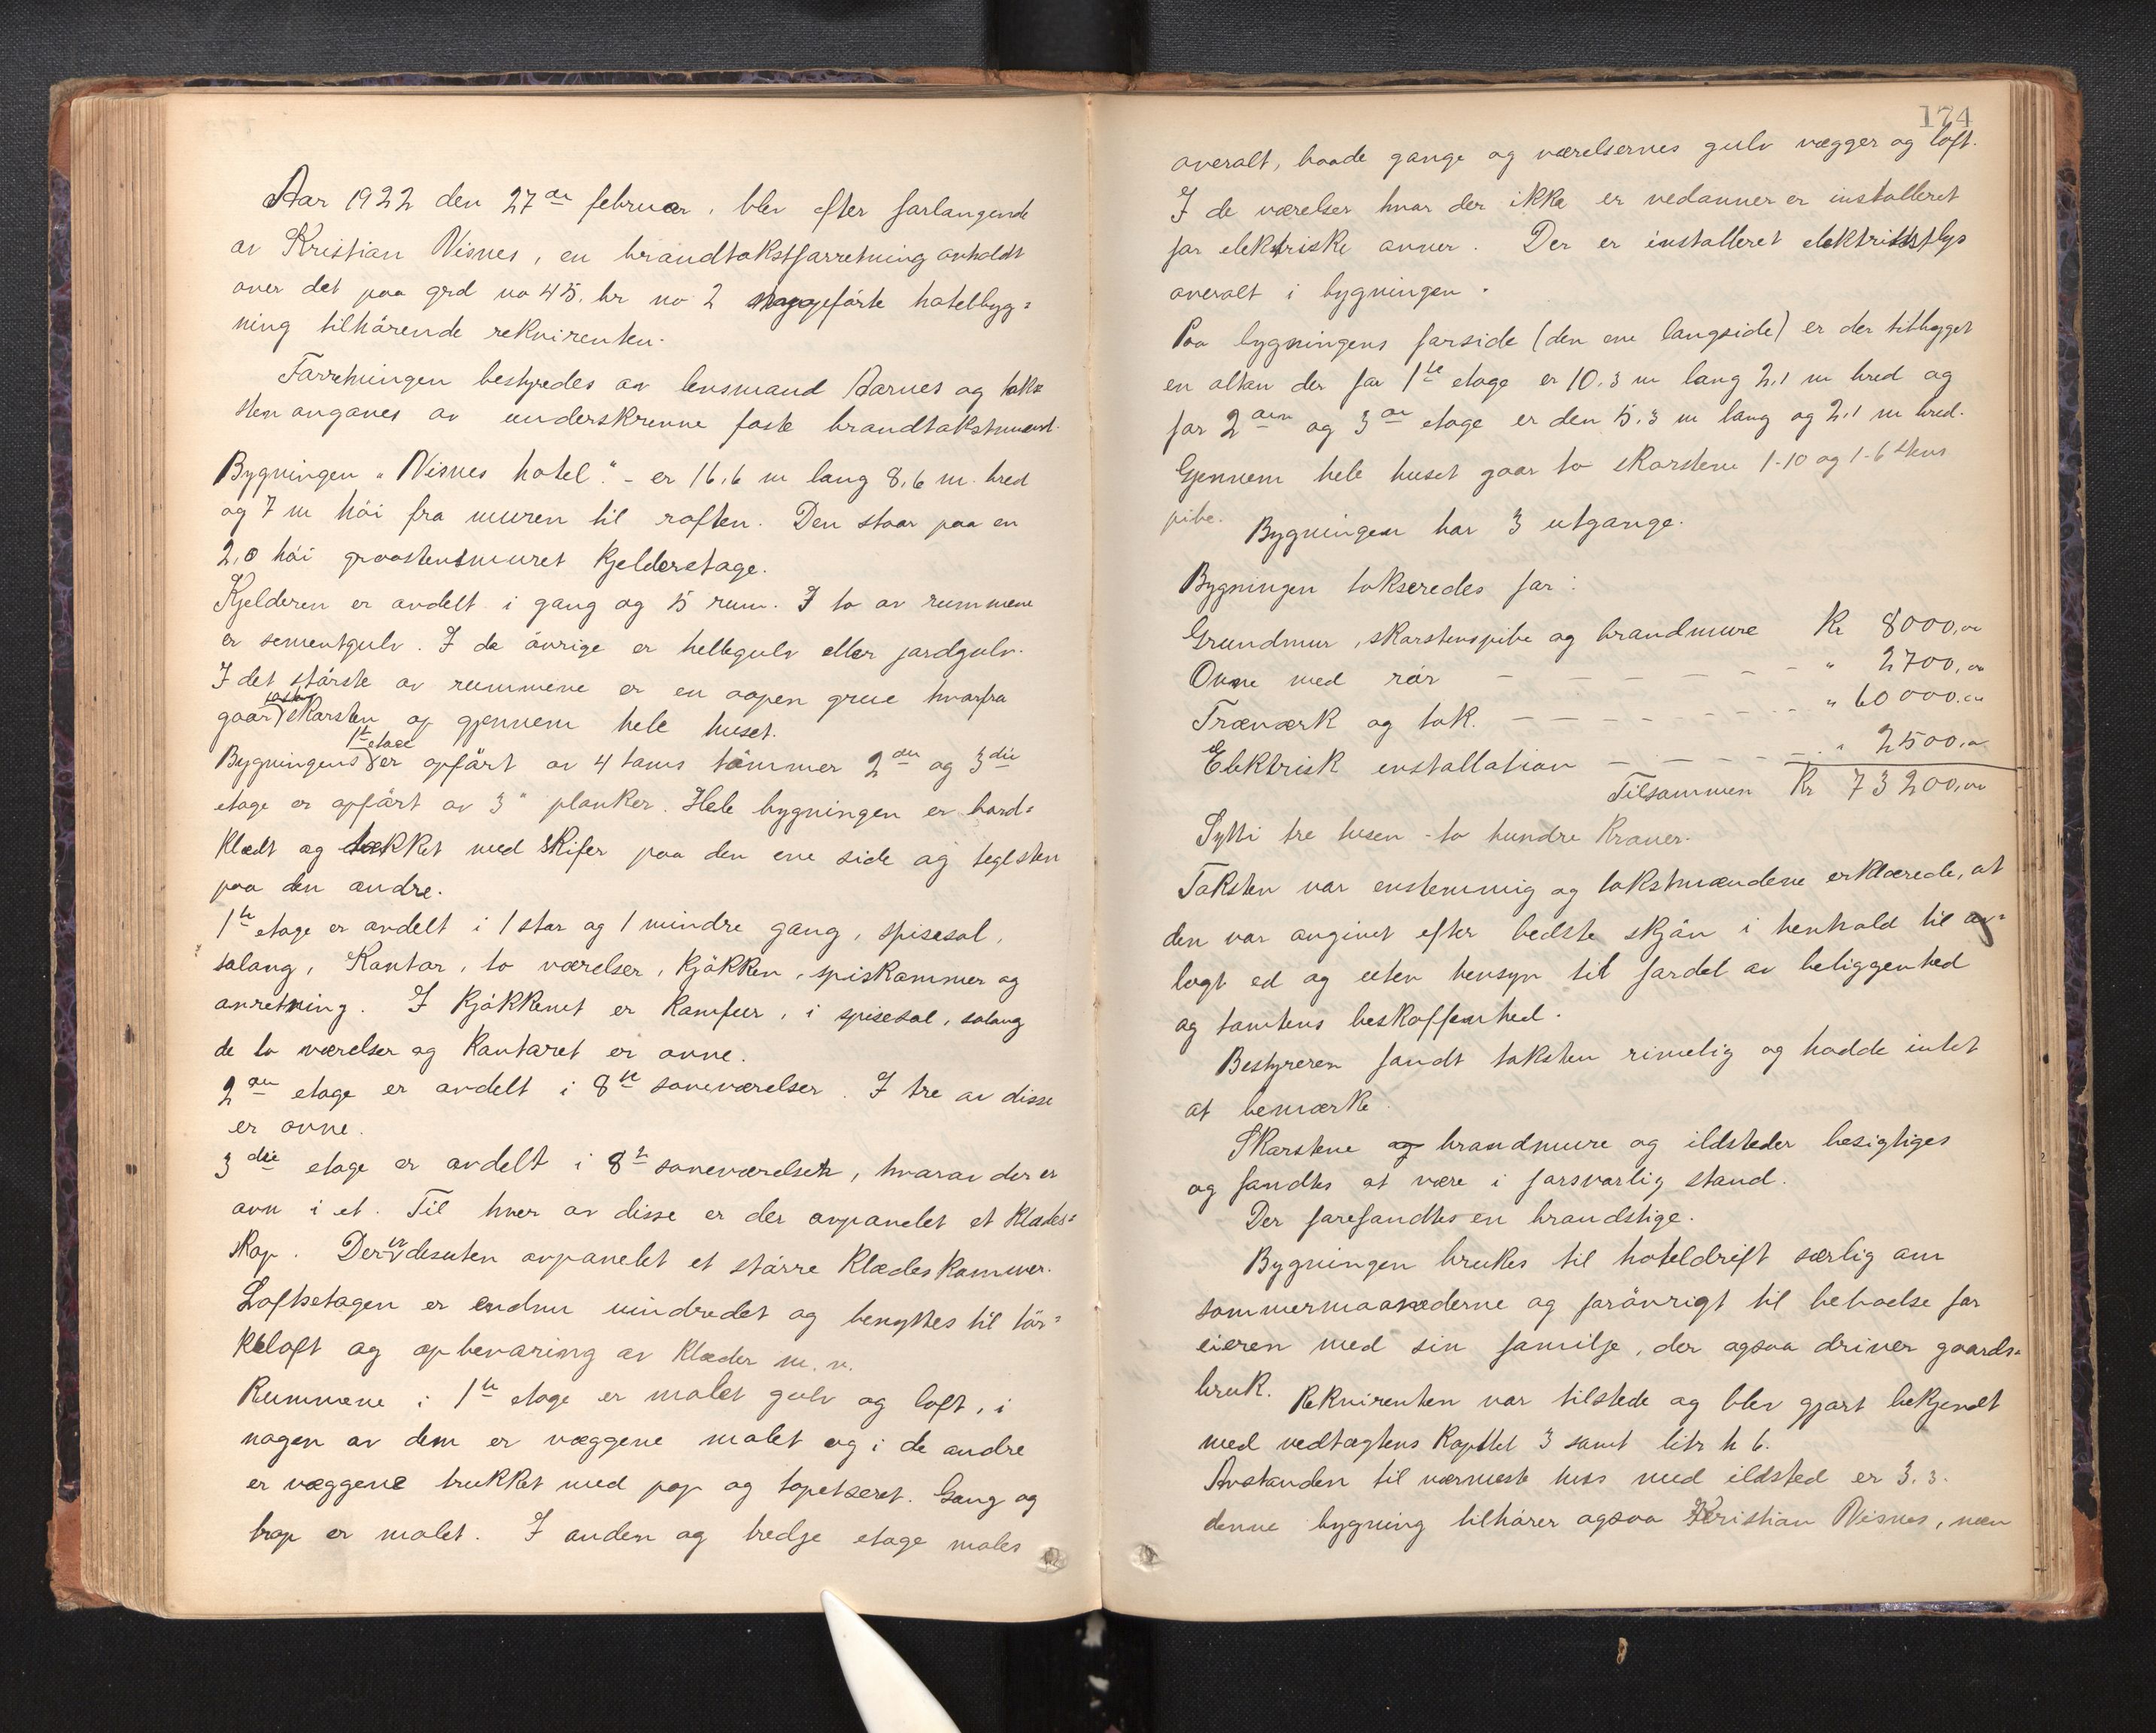 Aar 1922 den 27de februar, blev efter forlangende
av Kristian Visnes, en brandtakstforretning avholdt
over det paa grd no 45. br no 2 opførte hotelbyg=
ning tilhørende rekvirenten.
Forretningen bestyredes av lensmand Aarnes og tak=
sten avgaves av underskrevne faste brandtakstmænd.
Bygningen "Visnes hotel". - er 16,6 m lang 8,6 m. bred
og 7 m høi fra muren til roften. Den staar paa en
2,0 høi graastensmuret kjelderetage.
Kjelderen er avdelt i gang og 5 rum. I to av rummene
er sementgulv. I de øvrige er hellegulv eller jordgulv.
I det største av rummene er en aapen grue hvorfra
gaar skorsten op gjennem hele huset.
Bygningens 1ste etage er opført av 4 toms tømmer 2den og 3die
etage er opført av 3" planker. Hele bygningen er bord=
klædt og tækket med skifer paa den ene side og teglsten
paa den andre.
1ste etage er avdelt i 1 stor og 1 mindre gang, spisesal,
salong, Kontor, to værelser, kjøkken, spiskammer og
anretning. I kjøkkenet er komfur, i spisesal, salong
de to værelser og kontoret er ovne.
2den etage er avdelt i 8te soveværelser. I tre av disse
er ovne.
3die etage er avdelt i 8te soveværelser, hvorav der er
ovn i et. Til hver av disse er der avpanelet et klædes=
skap. Der er desuten avpanelet et større klædeskammer.
Loftsetagen er endnu uindredet og benyttes til tør=
keloft og opbevaring av klæder m. v.
Rummene i 1ste etage er malet gulv og loft, i
nogen av dem er væggene malet og i de andre
er væggene trukket med pap og tapetseret. Gang og
trap er malet. I anden og tredje etage males
174
overalt, baade gange og værelsernes gulv vægger og loft.
I de værelser hvor der ikke er vedovner er installeret
for elektriske ovner. Der er installeret elektrisk lys
overalt i bygningen.
Paa bygningens forside (den ene langside) er der tilbygget
en altan der for 1ste etage er 10.3 m lang 2,1 m bred og
for 2den og 3die etage er den 5.3 m lang og 2,1 m bred.
Gjennem hele huset gaar to skorstene 1-10 og 1-6 stens
pibe.
Bygningen har 3 utgange.
Bygningen takseredes for:
Grundmur, skorstenspibe og brandmure Kr 8000,00
Ovne med rør - - - - - " 2700,00
Træværk og tak. - - - - - " 60000,00
Elektrisk installation - - - - " 2500,00
Tilsammen Kr 73200,00
Sytti tre tusen - to hundre kroner.
Taksten var enstemmig og takstmændene erklærede, at
den var avgivet efter bedste skjøn i henhold til av=
lagt ed og uten hensyn til fordel av beliggenhed
og tomtens beskaffenhed.
Bestyreren fandt taksten rimelig og hadde intet
at bemærke.
Skorstene og brandmure og ildsteder besigtiges
og fandtes at være i forsvarlig stand.
Der forefandtes en brandstige.
Bygningen brukes til hoteldrift særlig om
sommermaanederne og forøvrigt til beboelse for
eieren med sin familje, der ogsaa driver gaards=
bruk.
Rekvirenten var tilstede og blev gjort bekjendt
med vedtægtens kapittel 3 samt litr h 6.
Avstanden til nærmeste hus med ildsted er 3.3.
denne bygning tilhører ogsaa Kristian Visnes, men